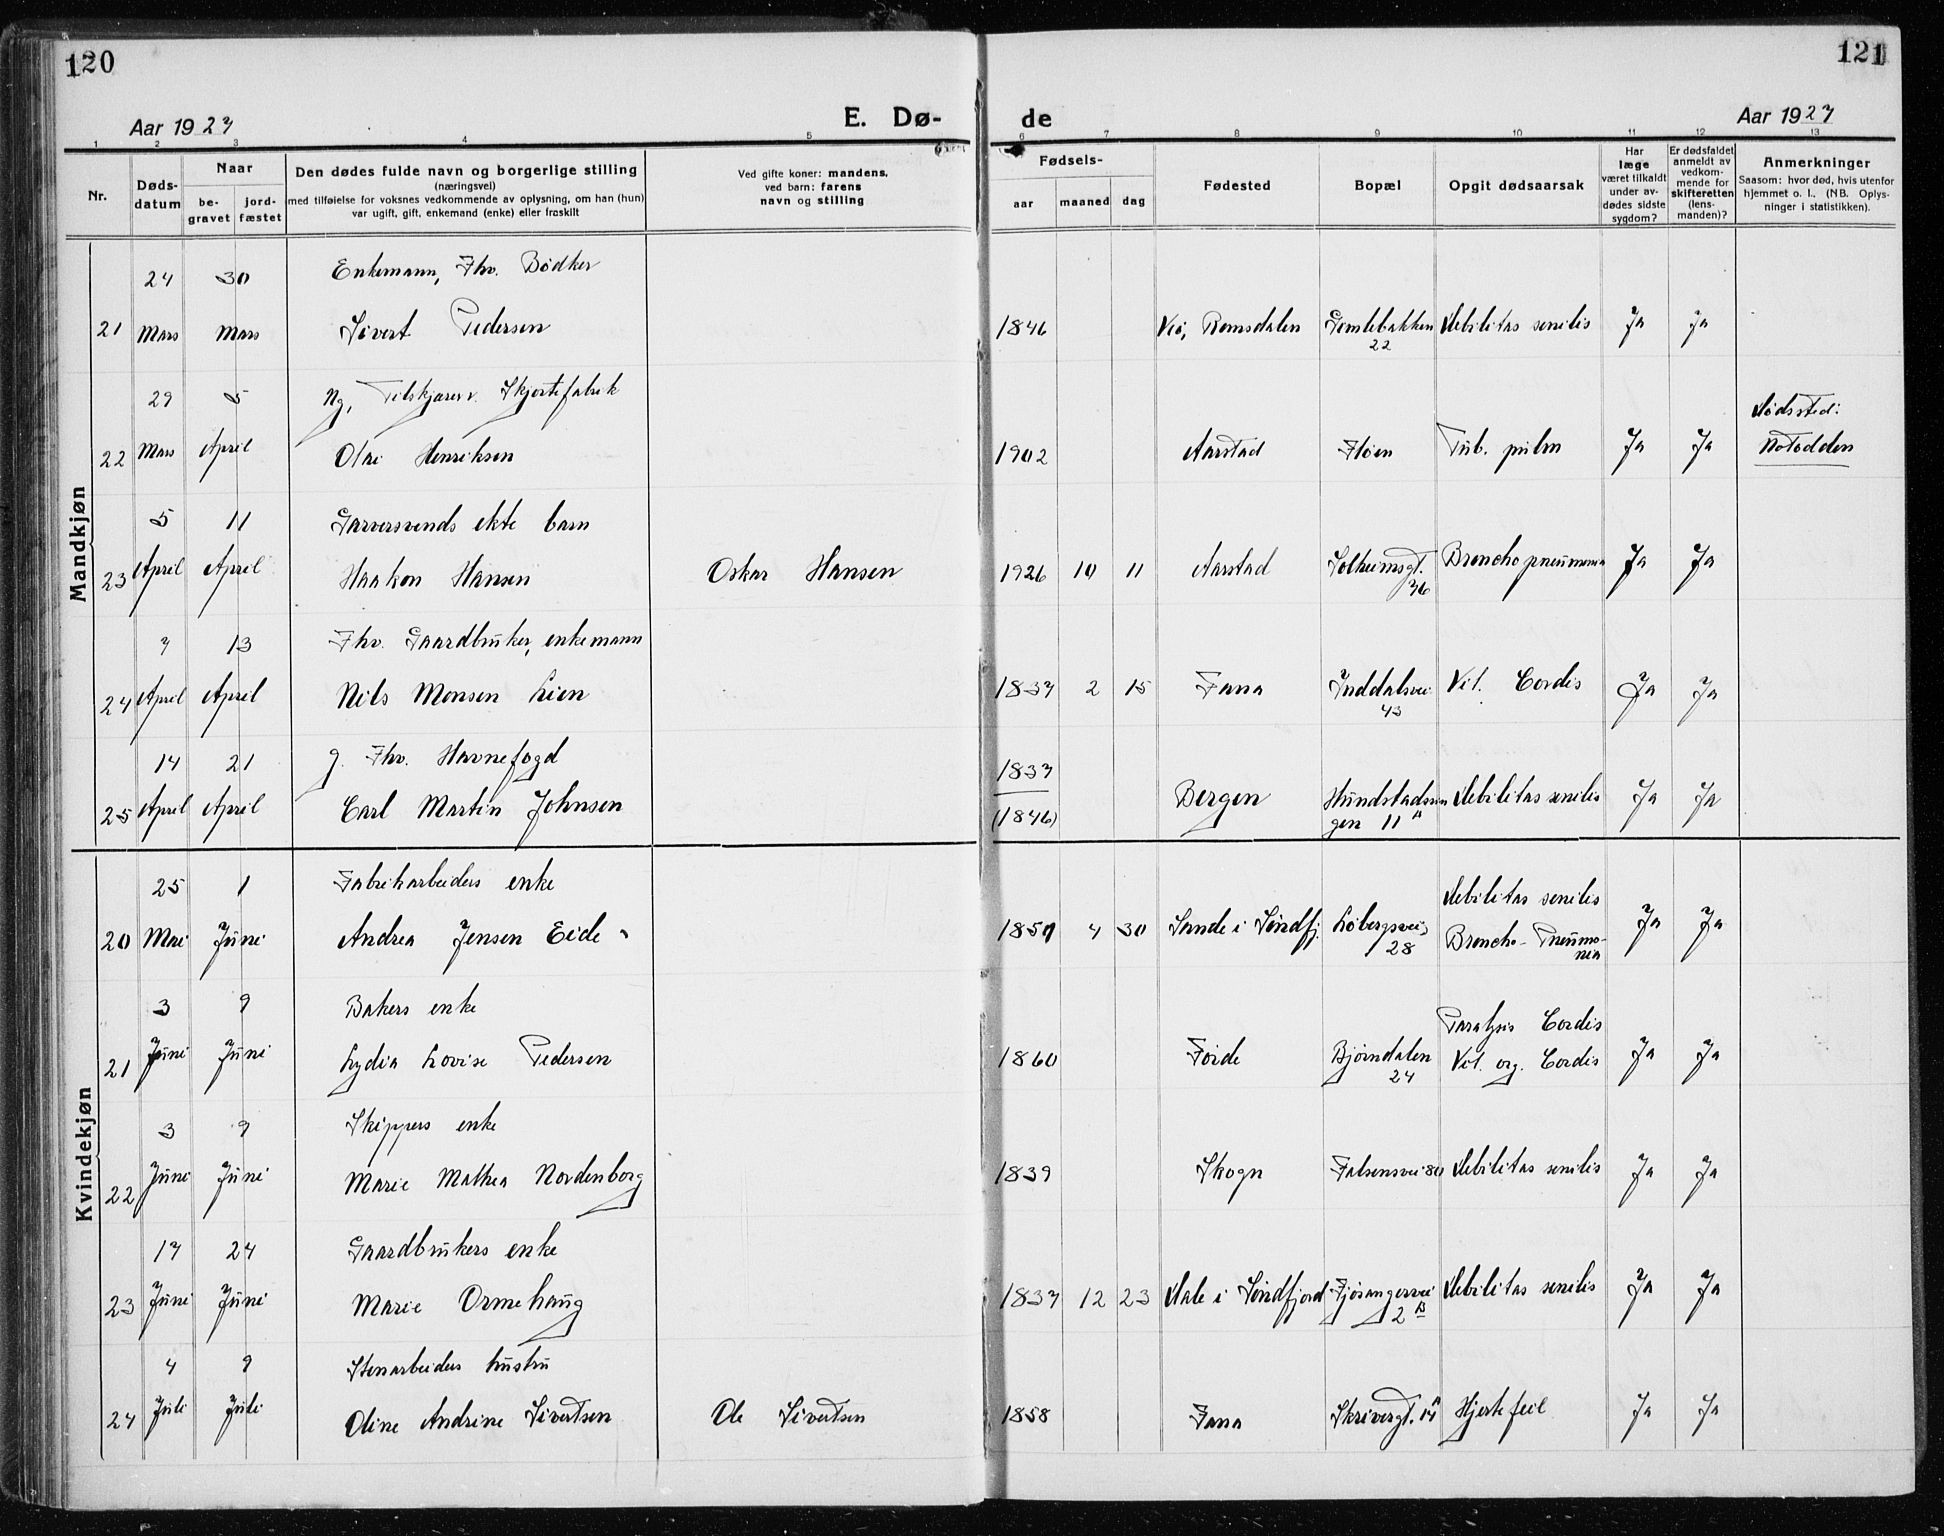 120
121
Aar 1927
E. Dø-
de
Aar 1927
1 2 3 4 5 6 7 8 9 10 11 12 13
Nr.
Døds-
datum
Naar
be-
gravet
jord-
fæstet
Den dødes fulde navn og borgerlige stilling
(næringsvei)
med tilføielse for voksnes vedkommende av oplysning, om han (hun)
var ugift, gift, enkemand (enke) eller fraskilt
Ved gifte koner: mandens,
ved barn: farens
navn og stilling
Fødsels-
aar
maaned
dag
Fødested
Bopæl
Opgit dødsaarsak
Har
læge
været tilkaldt
under av-
dødes sidste
sygdom?
Er dødsfaldet
anmeldt av
vedkom-
mende for
skifteretten
(lens-
manden)?
Anmerkninger
Saasom: hvor død, hvis utenfor
hjemmet o. l., (NB. Oplys-
ninger i statistikken).
Mandkjøn
24 30 Enkemann, Fhv. Bødker
21 Mars Mars Sivert Pedersen 1846 Veø, Romsdalen Gamlebakken Debilitas senilis Ja Ja
22
29 5 Ug, Tilskjærer v. Skjortefabrik
Dødssted:
22 Mars April Olai Henriksen 1902 Aarstad Fløen Tub. pulm Ja Ja Notodden
5 11 Garversvends ekte barn
23 April April Haakon Hansen Oskar Hansen 1926 10 11 Aarstad Solheimsgt. Bronchopneumonia Ja Ja
36
7 13 Fhv. Gaardbruker, enkemann
24 April April Nils Monsen Lien 1837 2 15 Fana Inddalsvei Vit. Cordis Ja Ja
43
14 21 g. Fhv. Havnefogd
1837
25 April April Carl Martin Johnsen Bergen Hundstadsvin Debilitas senilis Ja Ja
(1846) gen 11 A
Kvindekjøn
25 1 Fabrikarbeiders enke
Debilitas senilis
20 Mai Juni Andrea Jensen Eide 1850 4 30 Sande i Søndfj. Løbergsvei Broncho-Pneumo- Ja Ja
28 nia
3 9 Bakers enke
Paralysis Cordis
21 Juni Juni Lydia Lovise Pedersen 1860 Førde Bjørndalen Vit. org. Cordis Ja Ja
24
3 9 Skippers enke
22 Juni Juni Marie Mathea Nordenborg 1839 Skogn Falsensvei Debilitas senilis Ja Ja
17 24 Gaardbrukers enke
23 Juni Juni Marie Ormehaug 1837 12 23 Dale i Søndfjord Fjøsangervei Debilitas senilis Ja Ja
2 B
4 9 Stenarbeiders hustru
24 Juli Juli Oline Andrine Sivertsen Ole Sivertsen 1858 Fana Skrivergt. 14 A Hjertefeil Ja Ja